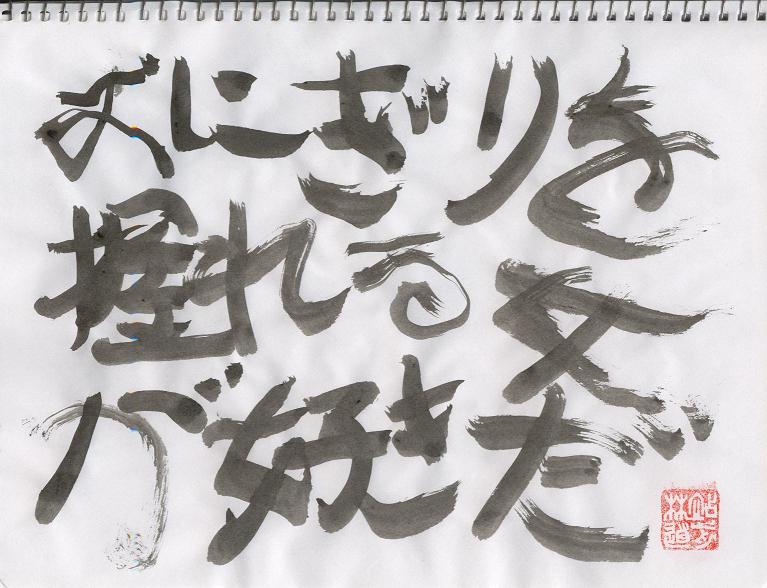 おにぎりを
握れる女
が好きだ